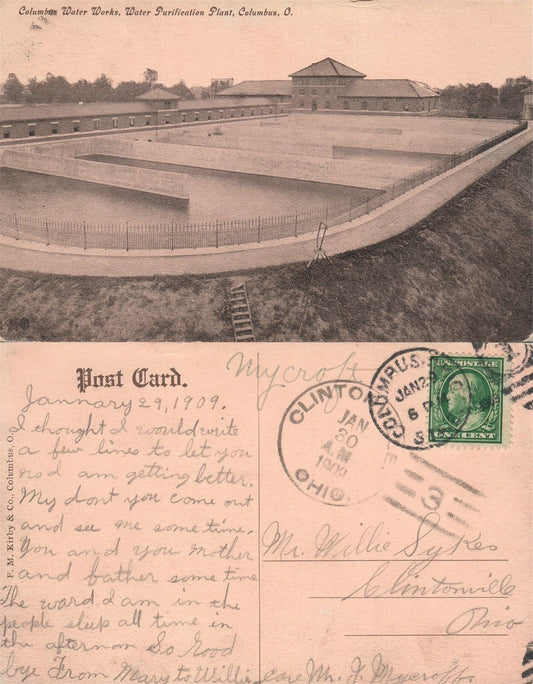 Columbus Water Works, Water Purification Plant, Columbus, O.
Post Card.
Mycroft
COLUMBUS
JAN 2
6 P
CLINTON
JAN
30
A.M
1909
OHIO.
3
U.S. POSTAGE
ONE CENT
January 29, 1909.
I thought I would write
a few lines to let you
no I am getting better.
My dont you come out
and see me some time.
You and you Mother
and bather some time
The ward I am in the
people sleep all time in
the afternoon So Good
bye From Mary to Willie
Mr. Willie Sykes
Clintonville
Ohio
care Mr. J. Mycroft
F. M. Kirby & Co., Columbus, O.